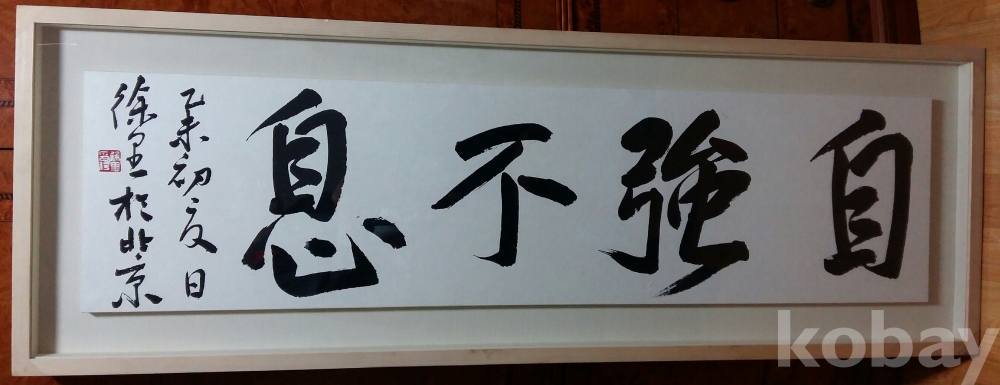 自強不息
乙未初夏日
徐里於北京
kobay